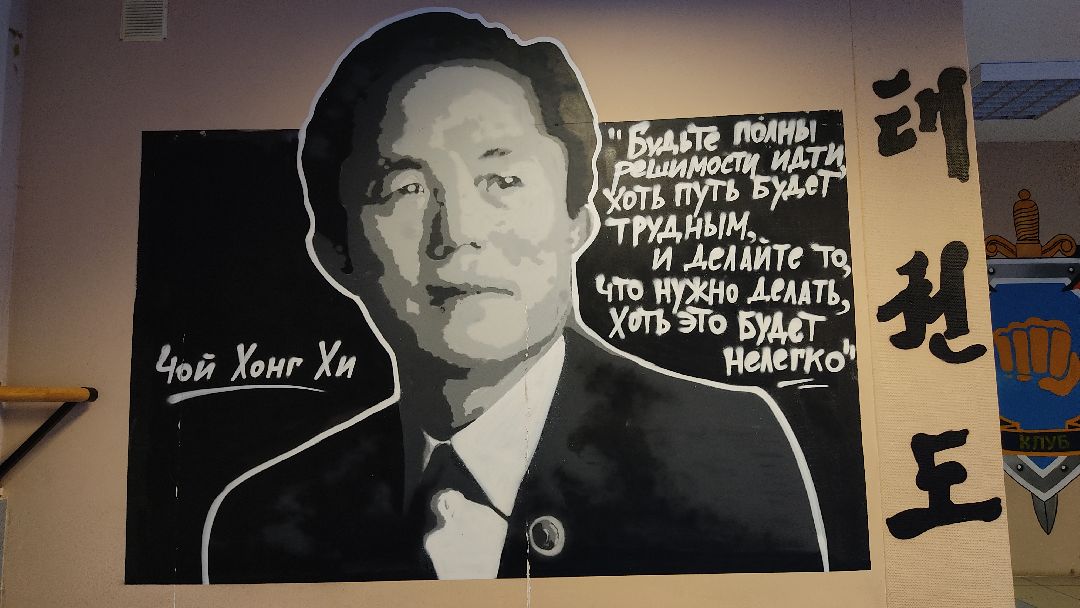 Чой Хонг Хи
"Будьте полны
решимости идти,
хоть путь будет
трудным,
и делайте то,
что нужно делать,
хоть это будет
нелегко"
태
권
도
КЛУБ